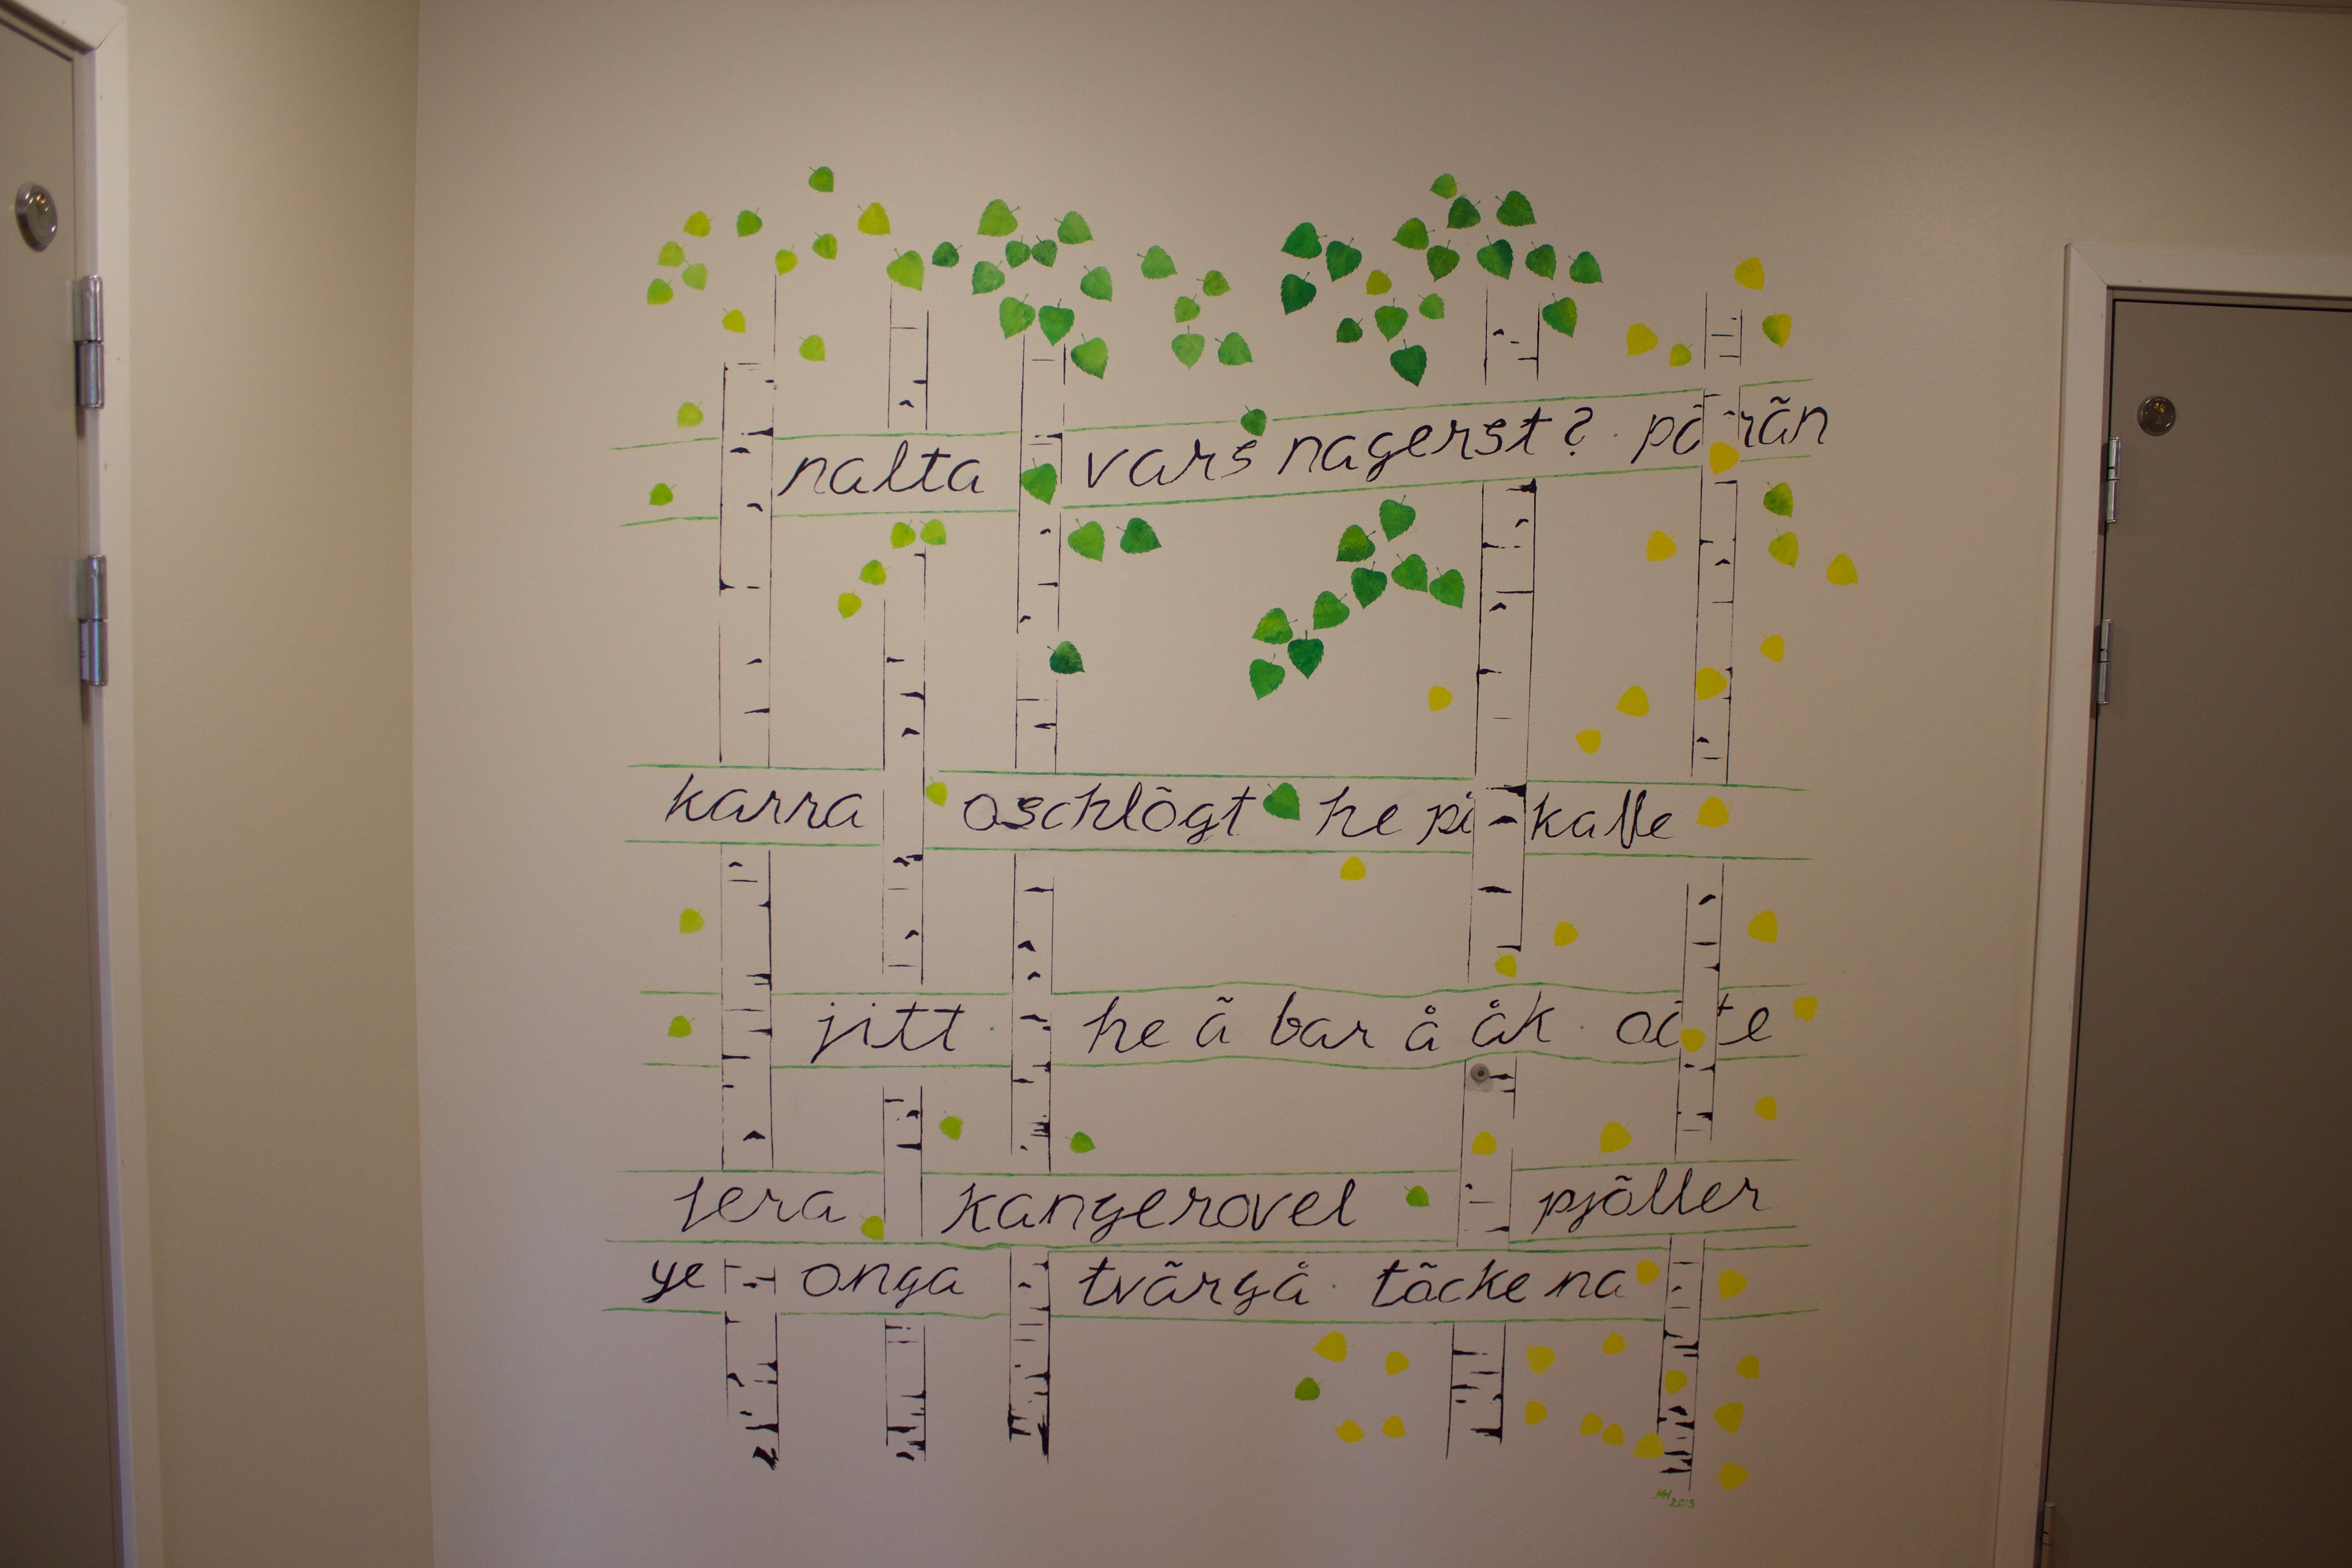 nalta vars nagerst?
karra oschlögt he kaffe
jitt · he ä bar å åk ·
jera kangerovel pjöller
onga tvärgå · töcke na
MH 2013